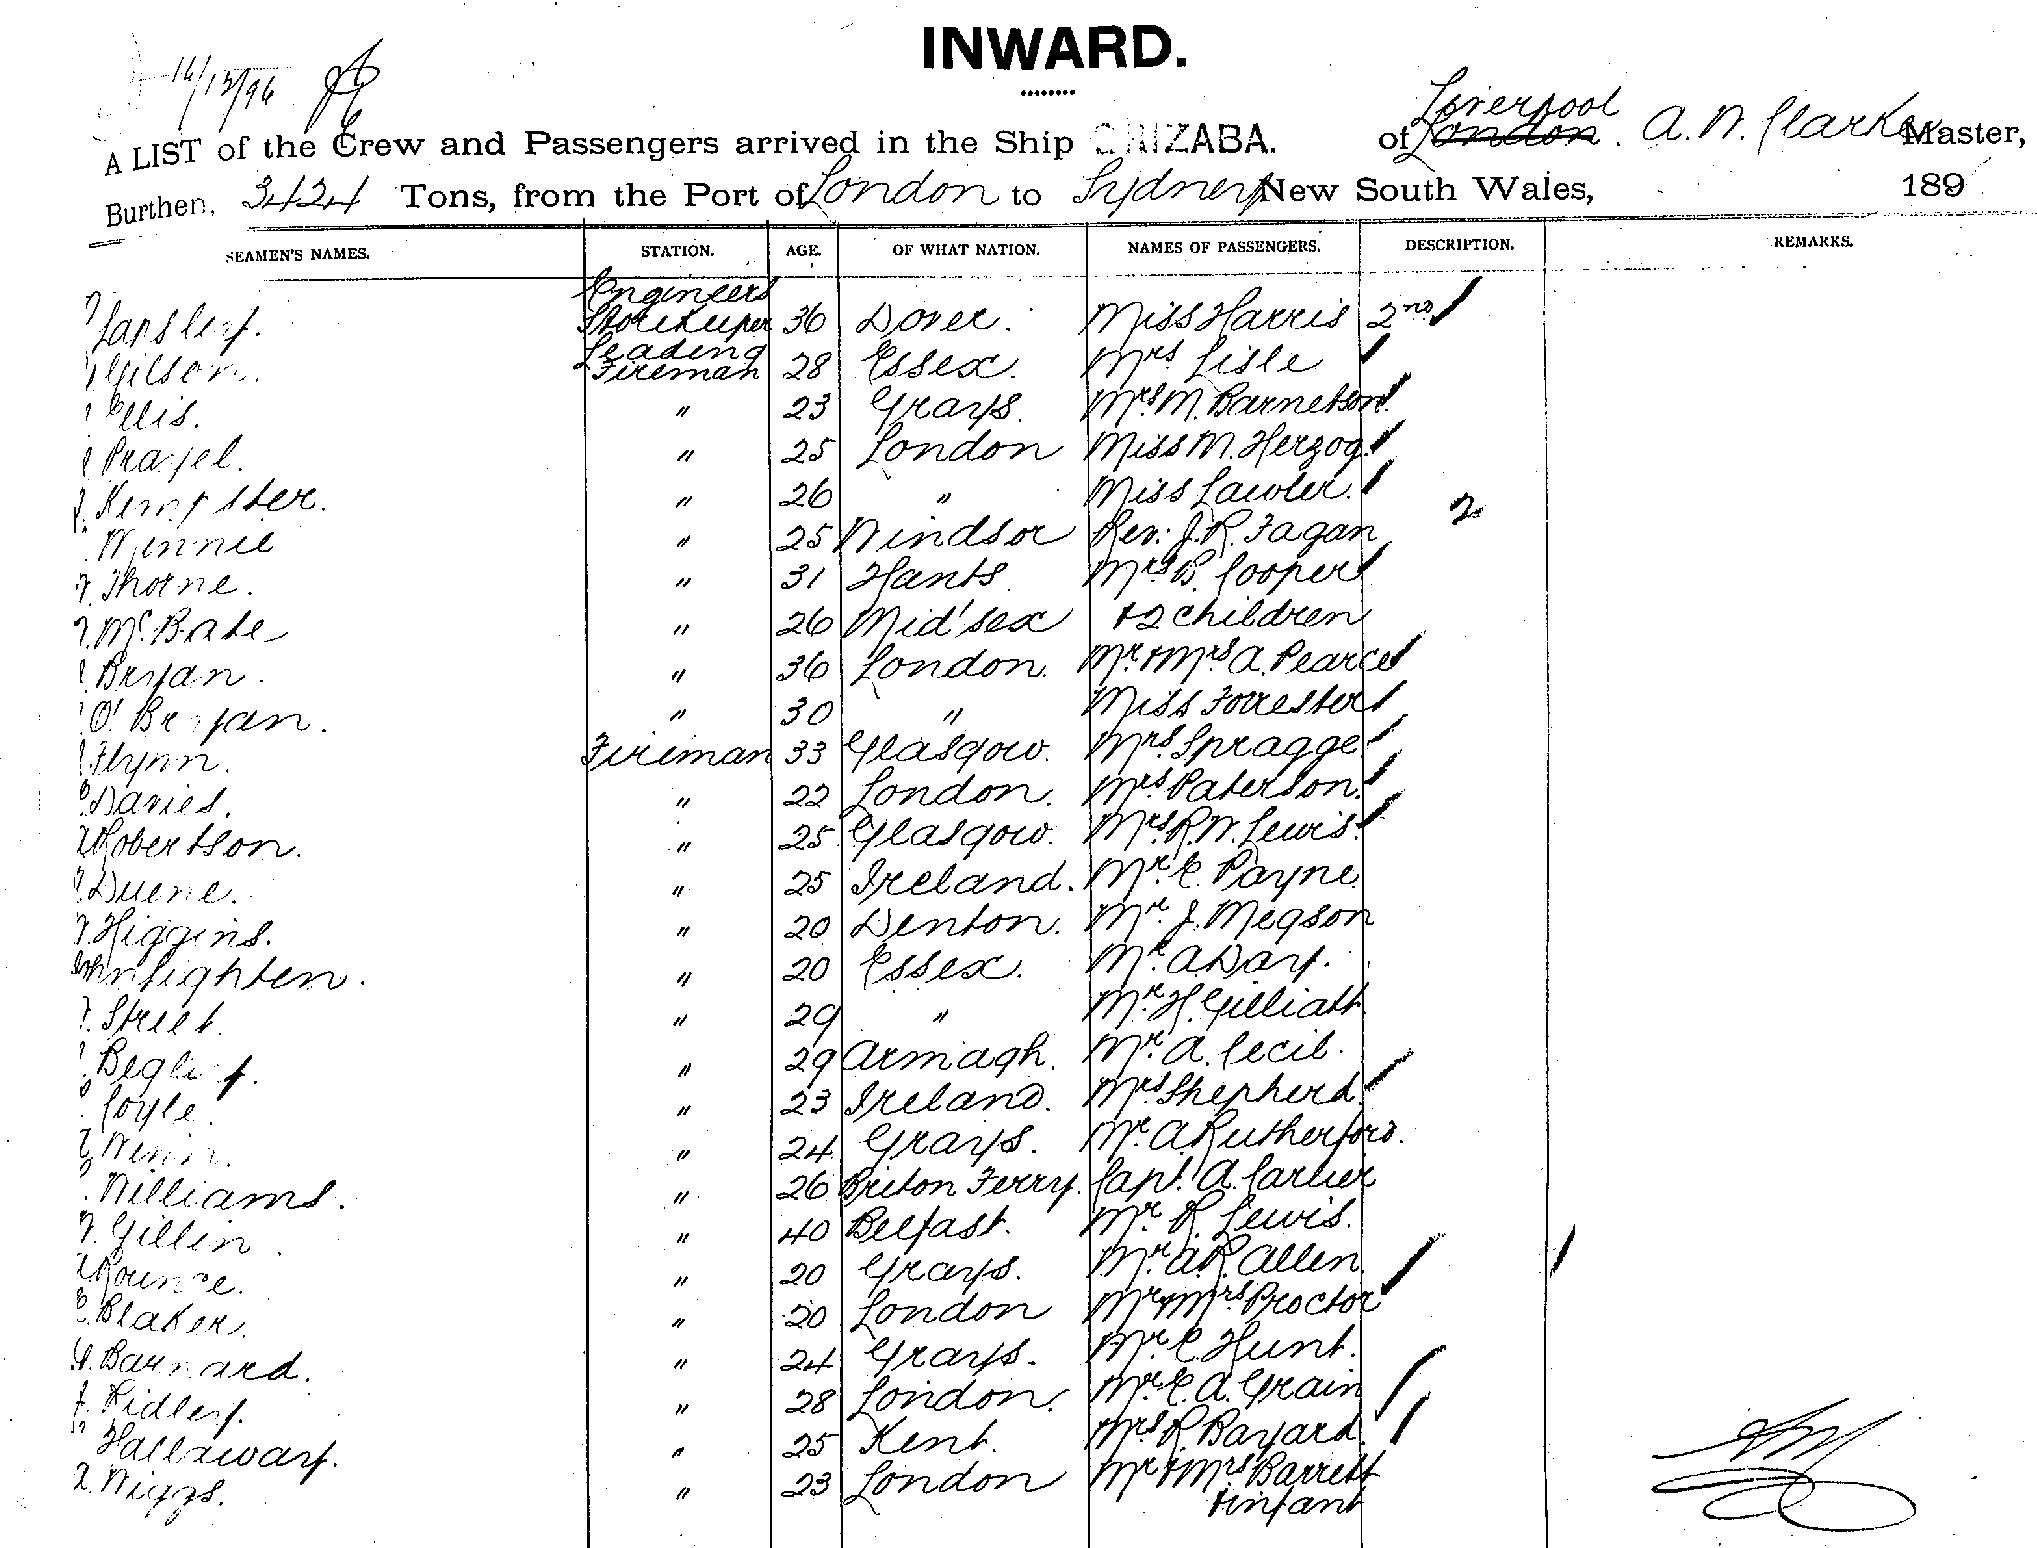 INWARD.
14/12/96
Liverpool
A LIST of the Crew and Passengers arrived in the Ship ORIZABA. of London. A. N. Clarke Master,
Burthen, 3424 Tons, from the Port of London to Sydney New South Wales, 189
SEAMEN'S NAMES. STATION. AGE. OF WHAT NATION. NAMES OF PASSENGERS. DESCRIPTION. REMARKS.
Engineers
Lapsley. Storekeeper 36 Dover. Miss Harris 2nd
Leading
Gilson. Fireman 28 Essex. Mrs Lisle
Ellis. " 23 Grays. Mrs M. Barnetson
" 25 London Miss M. Herzog
Kempster. " 26 " Miss Lawler. 2
Winnie " 25 Windsor Rev: J. R. Fagan
Thorne. " 31 Hants Mrs B. Cooper
McBate " 26 Mid'sex +2 children
Bryan. " 36 London. Mr. + Mrs A. Pearce
O'Bryan. " 30 " Miss Forrester
Flynn. Fireman 33 Glasgow. Mrs Spragge
Davies. " 22 London. Mrs Paterson.
Robertson. " 25 Glasgow. Mrs. R. W. Lewis.
Duene. " 25 Ireland. Mr. E. Payne
Higgins. " 20 Denton. Mr. J. Megson
" 20 Essex. Mr. A. Day.
Street. " 29 " Mr. H. Gilliatt
Begley. " 29 Armagh. Mr. A. Cecil.
Coyle. " 23 Ireland. Mrs Shepherd
" 24 Grays. Mr. A. Rutherford.
Williams. " 26 Briton Ferry. Capt. A. Carlier
Gillin " 40 Belfast. Mr. R. Lewis.
Rounce. " 20 Grays. Mr. A. R. Allen
Blaker. " 20 London Mr + Mrs Proctor
Barnard. " 24 Grays. Mr. C. Hunt.
Ridley. " 28 London. Mr. E. A. Grain
Hallaway. " 25 Kent. Mrs R. Bayard
Wiggs. " 23 London Mr + Mrs Barrett
+ infant